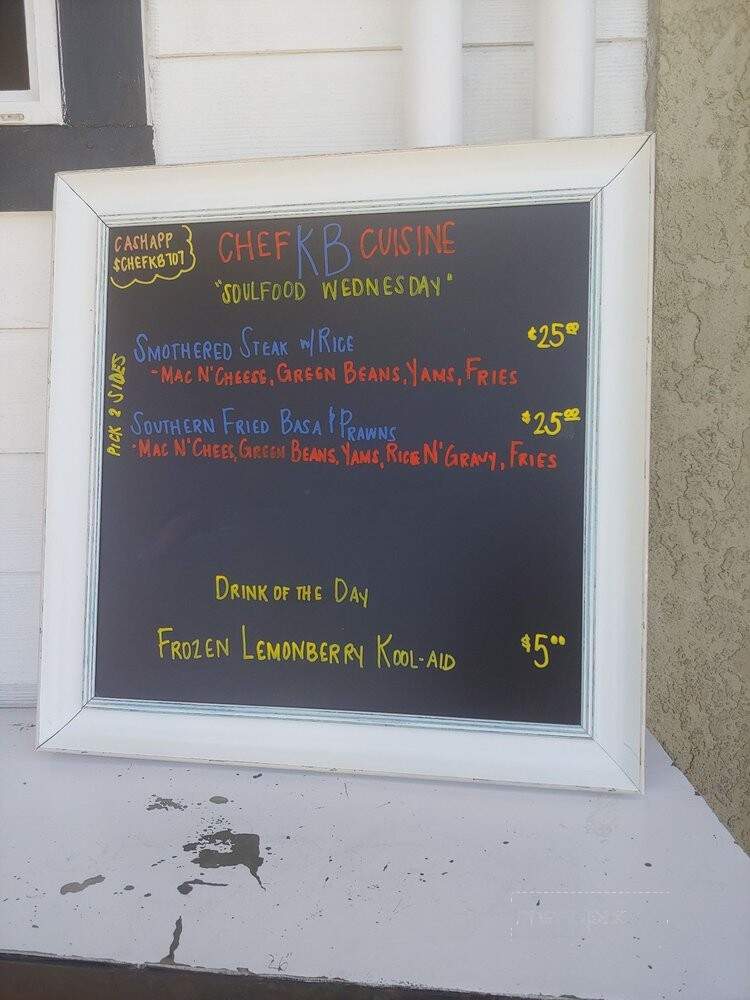 CASHAPP
$CHEFKB707
CHEF KB CUISINE
"SOULFOOD WEDNESDAY"
PICK 2 SIDES
SMOTHERED STEAK W/RICE $25.00
-MAC N'CHEESE, GREEN BEANS, YAMS, FRIES
SOUTHERN FRIED BASA & PRAWNS $25.00
-MAC N'CHEES, GREEN BEANS, YAMS, RICE N'GRAVY, FRIES
DRINK OF THE DAY
FROZEN LEMONBERRY KOOL-AID $5.00